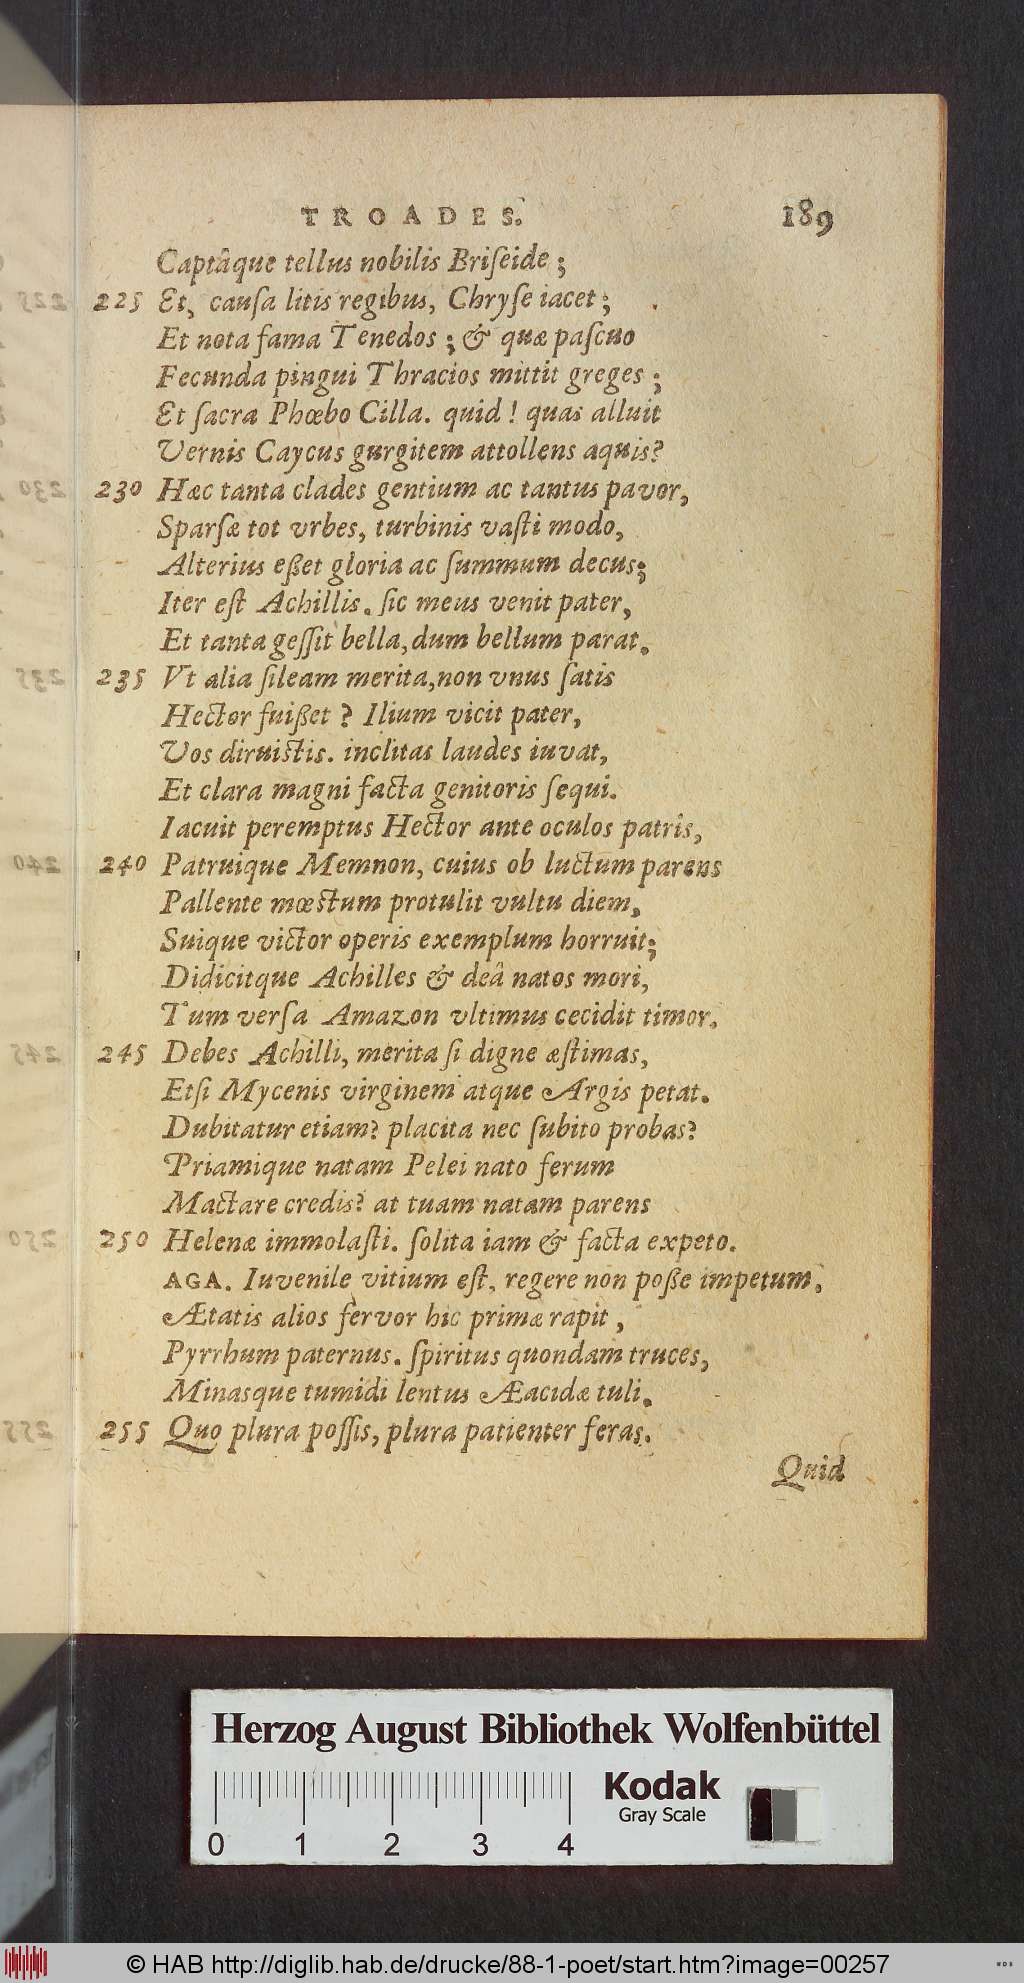 TROADES. 189
Captâque tellus nobilis Briſeide ;
225 Et, cauſa litis regibus, Chryſe iacet ;
Et nota fama Tenedos ; & quæ paſcuo
Fecunda pingui Thracios mittit greges ;
Et ſacra Phœbo Cilla. quid ! quas alluit
Vernis Caycus gurgitem attollens aquis?
230 Hæc tanta clades gentium ac tantus pavor,
Sparſæ tot vrbes, turbinis vaſti modo,
Alterius eßet gloria ac ſummum decus;
Iter eſt Achillis. ſic meus venit pater,
Et tanta geſſit bella, dum bellum parat.
235 Vt alia ſileam merita, non vnus ſatis
Hector fuißet ? Ilium vicit pater,
Vos diruiſtis. inclitas laudes iuvat,
Et clara magni facta genitoris ſequi.
Iacuit peremptus Hector ante oculos patris,
240 Patruique Memnon, cuius ob luctum parens
Pallente mœstum protulit vultu diem,
Suique victor operis exemplum horruit;
Didicitque Achilles & deâ natos mori,
Tum verſa Amazon vltimus cecidit timor.
245 Debes Achilli, merita ſi digne æſtimas,
Etſi Mycenis virginem atque Argis petat.
Dubitatur etiam? placita nec ſubito probas?
Priamique natam Pelei nato ferum
Mactare credis? at tuam natam parens
250 Helenæ immolaſti. ſolita iam & facta expeto.
AGA. Iuvenile vitium eſt, regere non poße impetum.
Ætatis alios fervor hic primæ rapit ,
Pyrrhum paternus. ſpiritus quondam truces,
Minasque tumidi lentus Æacidæ tuli.
255 Quo plura poſſis, plura patienter feras.
Quid
225
230
235
240
245
250
255
Herzog August Bibliothek Wolfenbüttel
Kodak
Gray Scale
0 1 2 3 4
© HAB http://diglib.hab.de/drucke/88-1-poet/start.htm?image=00257